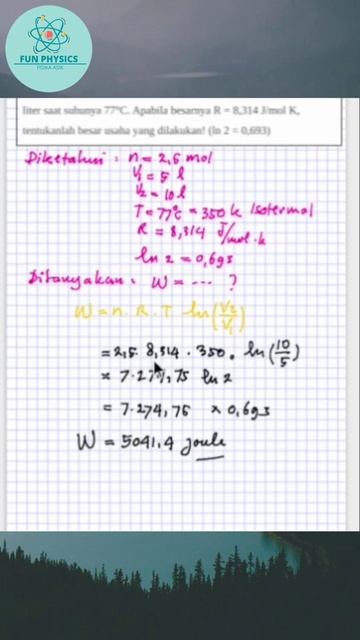 FUN PHYSICS
FISIKA ASIK
liter saat suhunya 77°C. Apabila besarnya R = 8,314 J/mol K,
tentukanlah besar usaha yang dilakukan! (ln 2 = 0,693)
Diketahui : n = 2,5 mol
V₁ = 5 l
V₂ = 10 l
T = 77°C = 350 k Isotermal
R = 8,314 J/mol.k
ln 2 = 0,693
Ditanyakan : W = ... ?
W = n. R. T ln (V₂/V₁)
= 2,5. 8,314 . 350 . ln (10/5)
= 7.274,75 ln 2
= 7.274,75 x 0,693
W = 5041,4 joule